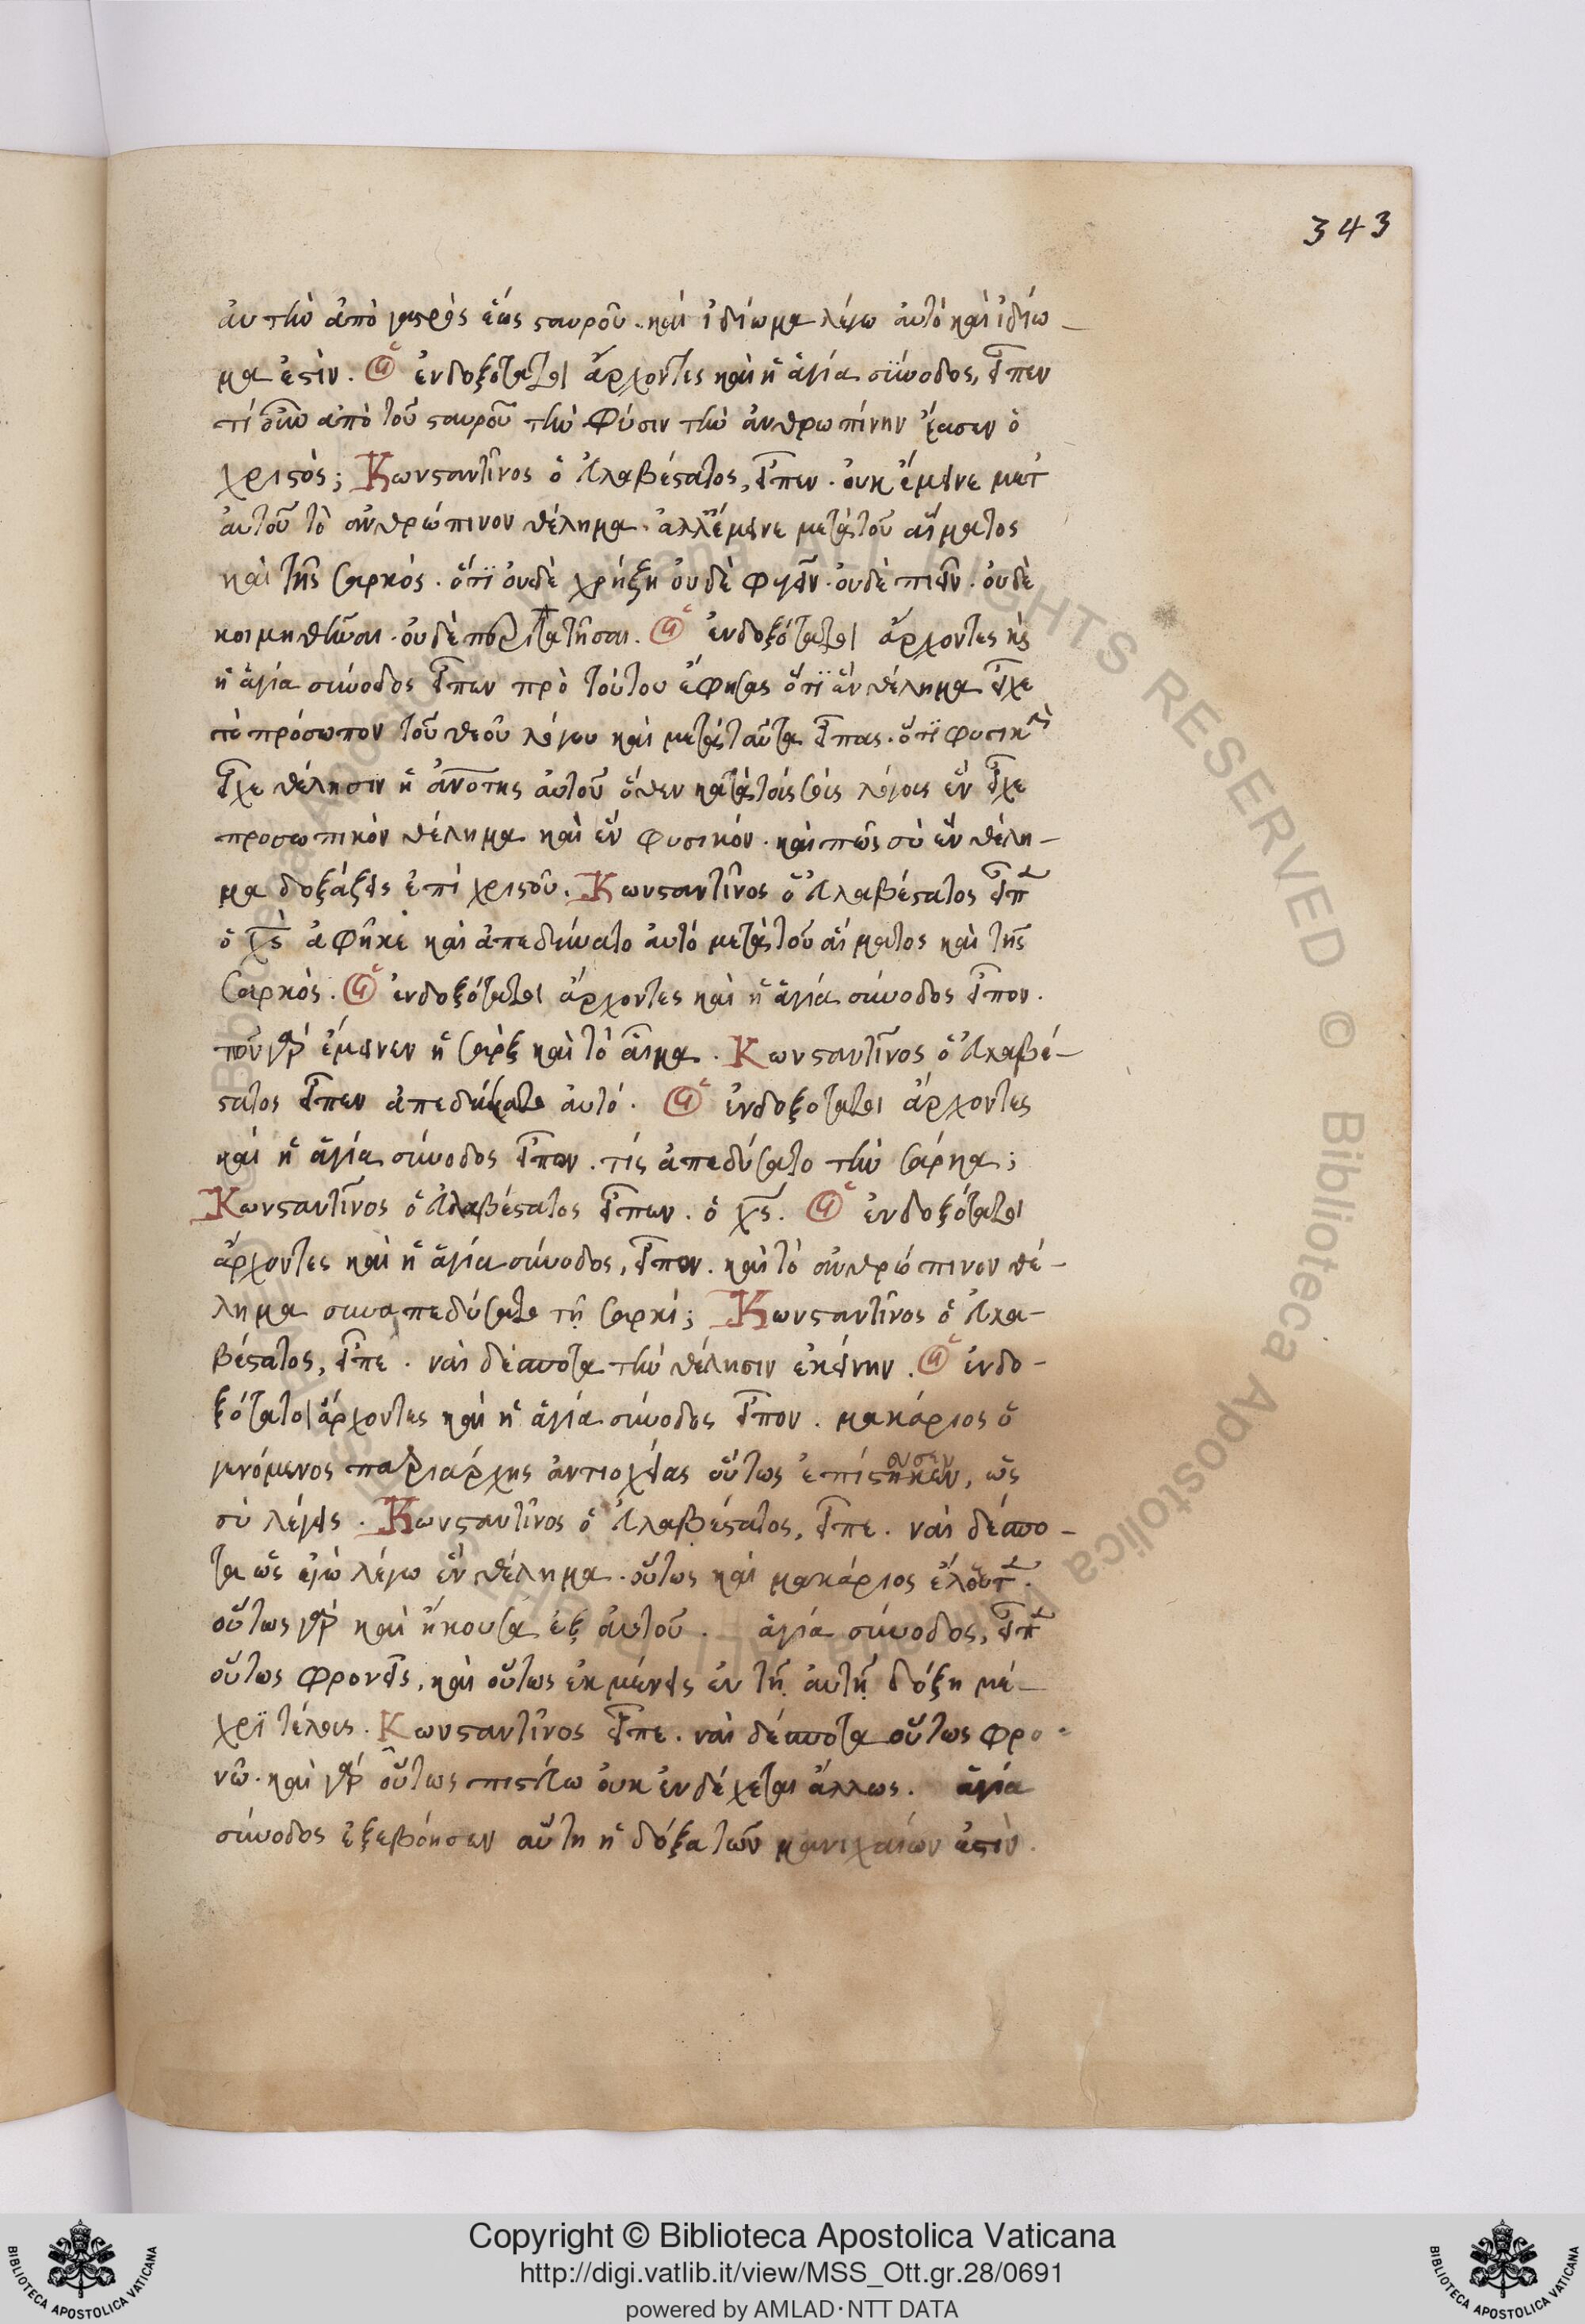 343
ἀυτὴν ἀπὸ γαςρὸς ἕως ςαυροῦ. καὶ ἰδίωμα λέγω ἀυτὸ καὶ ἰδίω-
μα ἐςὶν. ὁι ἐνδοξότατοι ἄρχοντες καὶ ἡ ἁγία σύνοδος, εἶπεν
τί οὖν ἀπὸ τοῦ ςαυροῦ τὴν φύσιν τὴν ἀνθρωπίνην ἔασεν ὁ
χριςὸς; Κωνςαντῖνος ὁ Ἀλαβέςατος, εἶπεν. ὀυκ ἔμεινε μετ
ἀυτοῦ τὸ ἀνθρώπινον θέλημα. ἀλλ' ἔμεινε μετὰ τοῦ αἵματος
καὶ τῆς σαρκός. ὅτι ὀυδὲ χρήζη ὀυδὲ φαγεῖν. ὀυδὲ πιεῖν. ὀυδὲ
κοιμηθῆναι. ὀυδὲ περιπατῆσαι. ὁι ἐνδοξότατοι ἄρχοντες κς
ἡ ἁγία σύνοδος εἶπεν πρὸ τούτου ἔφησας ὅτι ἓν θέλημα εἶχε
τὸ πρόσωπον τοῦ θεοῦ λόγου καὶ μετὰ ταῦτα εἶπας. ὅτι φυσικὴν
εἶχε θέλησιν ἡ ἀνοτης ἀυτοῦ ὅθεν κατὰ τοὺς σοὺς λόγους ἓν εἶχε
προσωπικὸν θέλημα καὶ ἓν φυσικόν. καὶ πῶς σὺ ἓν θέλη-
μα δοξάζεις ἐπὶ χριςοῦ. Κωνςαντῖνος ὁ Ἀλαβέςατος εἶπ
ὁ χς ἀφῆκε καὶ ἀπεδύσατο ἀυτό μετὰ τοῦ αἵματος καὶ τῆς
σαρκὸς. ὁι ἐνδοξότατοι ἄρχοντες καὶ ἡ ἁγία σύνοδος εἶπον.
ποῦ γὰρ ἔμεινεν ἡ σὰρξ καὶ τὸ αἷμα. Κωνςαντῖνος ὁ Ἀλαβέ-
ςατος εἶπεν ἀπεδύσατο ἀυτό. ὁι ἐνδοξοτατοι ἄρχοντες
καὶ ἡ ἁγία σύνοδος εἶπον. τίς ἀπεδύσατο τὴν σάρκα;
Κωνςαντῖνος ὁ Ἀλαβέςατος εἶπεν. ὁ χς. ὁι ἐνδοξότατοι
ἄρχοντες καὶ ἡ ἁγία σύνοδος, εἶπον. καὶ τὸ ἀνθρώπινον θέ-
λημα συναπεδύσατο τῇ σαρκὶ; Κωνςαντῖνος ὁ Ἀλα-
βέςατος, εἶπε. ναὶ δέσποτα τὴν θέλησιν ἐκείνην. ὁι ἐνδο-
ξότατοι ἄρχοντες καὶ ἡ ἁγία σύνοδος εἶπον. μακάριος ὁ
γενόμενος πατριάρχης ἀντιοχείας οὕτως ἐπίςηκεν, ὡς
ευσεν
σὺ λέγεις. Κωνςαντῖνος ὁ Ἀλαβέςατος, εἶπε. ναὶ δέσπο-
τα ὡς ἐγὼ λέγω ἓν θέλημα. οὕτως καὶ μακάριος ἔλεγεν.
οὕτως γὰρ καὶ ἤκουσα ἐξ ἀυτοῦ. ἁγία σύνοδος, εἶπ
οὕτως φρονεῖς, καὶ οὕτως ἐκμένεις ἐν τῇ ἀυτῇ δόξη μέ-
χρι τέλους. Κωνςαντῖνος εἶπε. ναὶ δέσποτα οὕτως φρο-
νῶ. καὶ γὰρ οὕτως πιςεύω ὀυκ ἐνδέχεται ἄλλως. ἁγία
σύνοδος ἐξεβόησεν αὕτη ἡ δόξα τῶν μανιχαίων ἐςὶν.
Copyright © Biblioteca Apostolica Vaticana
http://digi.vatlib.it/view/MSS_Ott.gr.28/0691
powered by AMLAD·NTT DATA